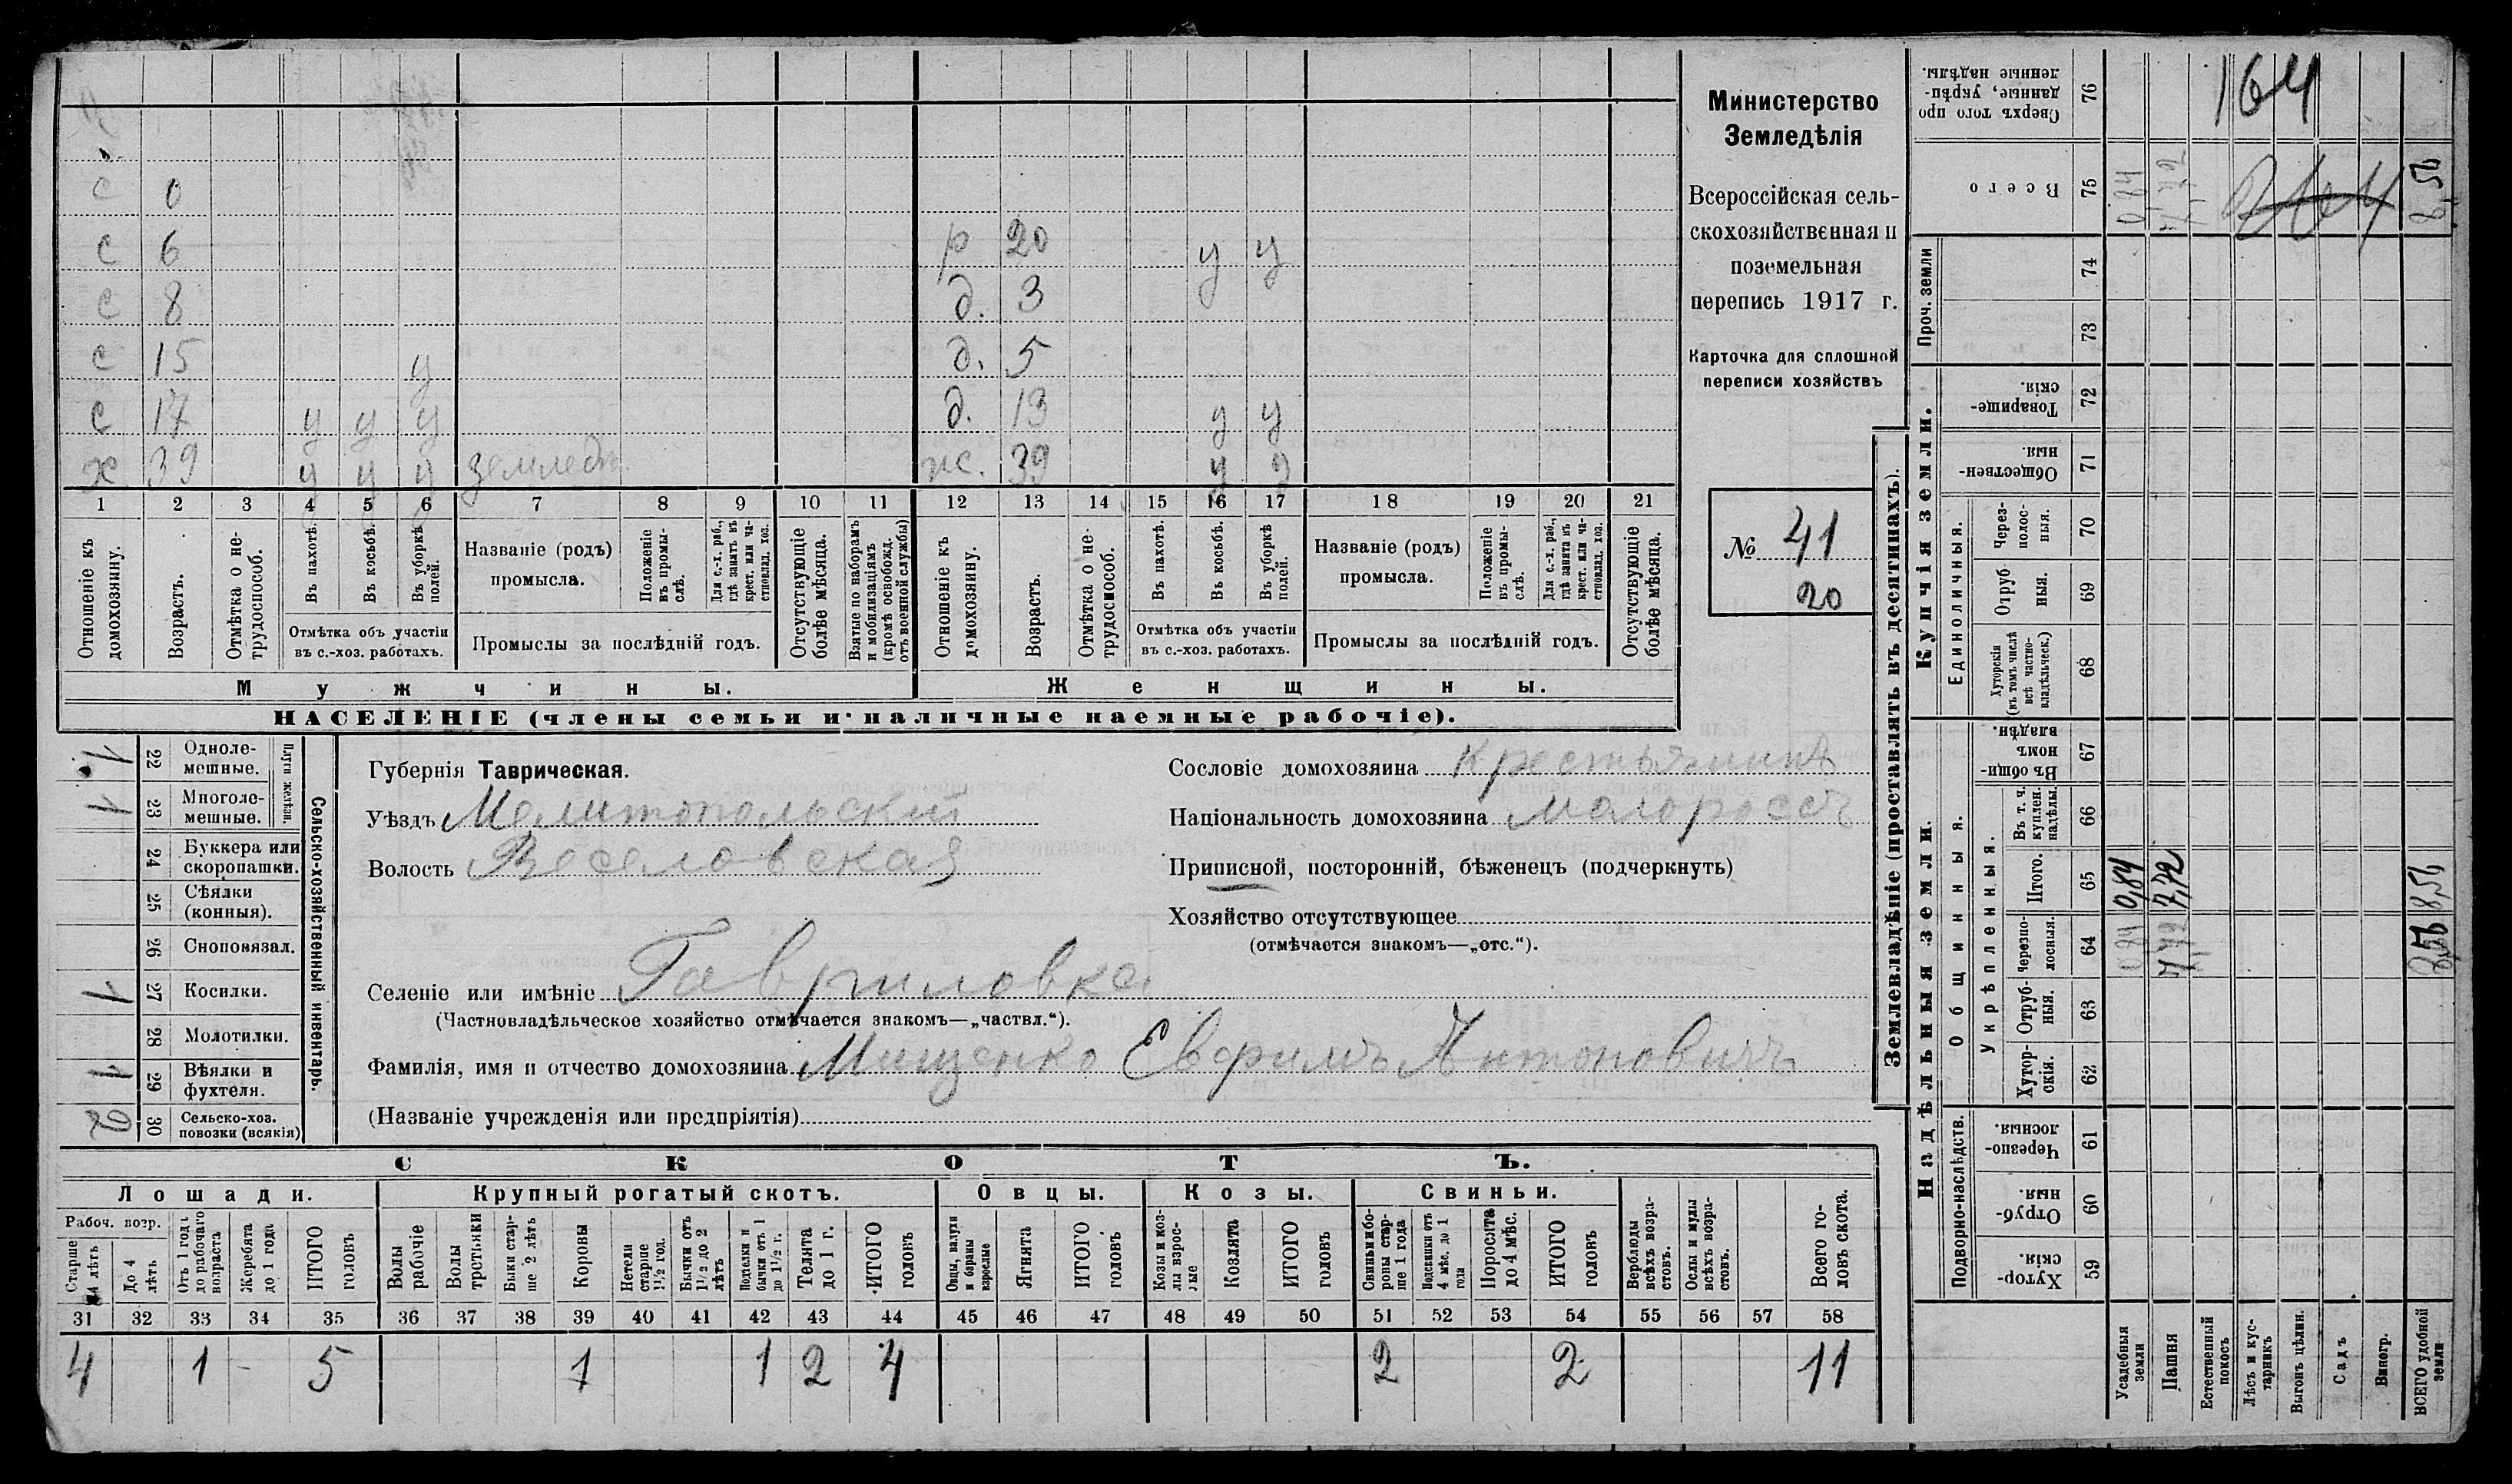 с 0
с 6 р 20 у у
с 8 д. 3
с 15 у д. 5
с 17 у у у д. 13 у у
х 39 у у у земледѣ. ж. 39 у у
1 2 3 4 5 6 7 8 9 10 11 12 13 14 15 16 17 18 19 20 21
Отношеніе къ домохозяину.
Возрастъ.
Отмѣтка о нетрудоспособ.
Въ пахотѣ.
Въ косьбѣ.
Въ уборкѣ полей.
Отмѣтка объ участіи
въ с.-хоз. работахъ.
Названіе (родъ)
промысла.
Положеніе въ промыслѣ.
Для с.-х. раб., гдѣ занятъ въ крест. или частновлад. хоз.
Промыслы за послѣдній годъ.
Отсутствующіе болѣе мѣсяца.
Взятые по наборамъ и мобилизаціямъ (кромѣ освобожд. отъ военной службы)
Отношеніе къ домохозяину.
Возрастъ.
Отмѣтка о нетрудоспособ.
Въ пахотѣ.
Въ косьбѣ.
Въ уборкѣ полей.
Отмѣтка объ участіи
въ с.-хоз. работахъ.
Названіе (родъ)
промысла.
Положеніе въ промыслѣ.
Для с.-х. раб., гдѣ занята въ крест. или частновлад. хоз.
Промыслы за послѣдній годъ.
Отсутствующіе болѣе мѣсяца.
Мужчины. Женщины.
НАСЕЛЕНІЕ (члены семьи и наличные наемные рабочіе).
Министерство
Земледѣлія
Всероссійская сель-
скохозяйственная и
поземельная
перепись 1917 г.
Карточка для сплошной
переписи хозяйствъ
№ 41
20
1 22 Одноле-
мешные.
1 23 Многоле-
мешные.
Плуги желѣзн.
24 Буккера или
скоропашки.
25 Сѣялки
(конныя).
26 Сноповязал.
1 27 Косилки.
28 Молотилки.
1 29 Вѣялки и
фухтеля.
2 30 Сельско-хоз.
повозки (всякія)
Сельско-хозяйственный инвентарь.
Губернія Таврическая.
Уѣздъ Мелитопольскій
Волость Веселовская
Сословіе домохозяина крестьянинъ
Національность домохозяина малороссъ
Приписной, посторонній, бѣженецъ (подчеркнуть)
Хозяйство отсутствующее
(отмѣчается знакомъ—„отс.“).
Селеніе или имѣніе Гавриловка
(Частновладѣльческое хозяйство отмѣчается знакомъ—„частвл.“).
Фамилія, имя и отчество домохозяина Мищенко Евфимъ Антоновичъ
(Названіе учрежденія или предпріятія)
СКОТЪ.
Лошади. Крупный рогатый скотъ. Овцы. Козы. Свиньи.
Рабоч. возр.
Старше 4 лѣтъ
До 4 лѣтъ
Отъ 1 года до рабочаго возраста
Жеребята до 1 года
ИТОГО головъ
Волы рабочіе
Волы третьяки
Быки старше 2 лѣтъ
Коровы
Нетели старше 1½ год.
Бычки отъ 1½ до 2 лѣтъ
Подтелки и бычки отъ 1 до 1½ г.
Телята до 1 г.
ИТОГО головъ
Овцы, валухи и бараны взрослые
Ягнята
ИТОГО головъ
Козы и козлы взрослые
Козлята
ИТОГО головъ
Свиньи и боровы старше 1 года
Подсвинки отъ 4 мѣс. до 1 года
Поросята до 4 мѣс.
ИТОГО головъ
Верблюды всѣхъ возрастовъ.
Ослы и мулы всѣхъ возрастовъ.
Всего головъ скота.
31 32 33 34 35 36 37 38 39 40 41 42 43 44 45 46 47 48 49 50 51 52 53 54 55 56 57 58
4 1 - 5 1 1 2 4 2 2 11
Землевладѣніе (проставлять въ десятинахъ).
Купчія земли.
Надѣльныя земли.
Сверхъ того проданные, укрѣпленные надѣлы. 76 164
Всего 75 0,84 7,72 264 8,56
Проч. земли
74
73
Товарищескія. 72
Общественныя. 71
Единоличныя.
Черезполосныя. 70
Отрубныя. 69
Хуторскія (въ томъ числѣ всѣ частновладѣльческ.) 68
Общинныя.
Въ общинномъ владѣн. 67
Укрѣпленныя.
Въ т. ч. куплен. надѣлы. 66
Итого. 65 0,84 7,72 8,56
Черезполосныя. 64 0,84 7,72 8,56
Отрубныя. 63
Хуторскія. 62
Подворно-наслѣдств.
Черезполосныя. 61
Отрубныя. 60
Хуторскія. 59
Усадебныя земли
Пашня
Естественный покосъ
Лѣсъ и кустарникъ
Выгонъ цѣлин.
Садъ
Виногр.
ВСЕГО удобной земли